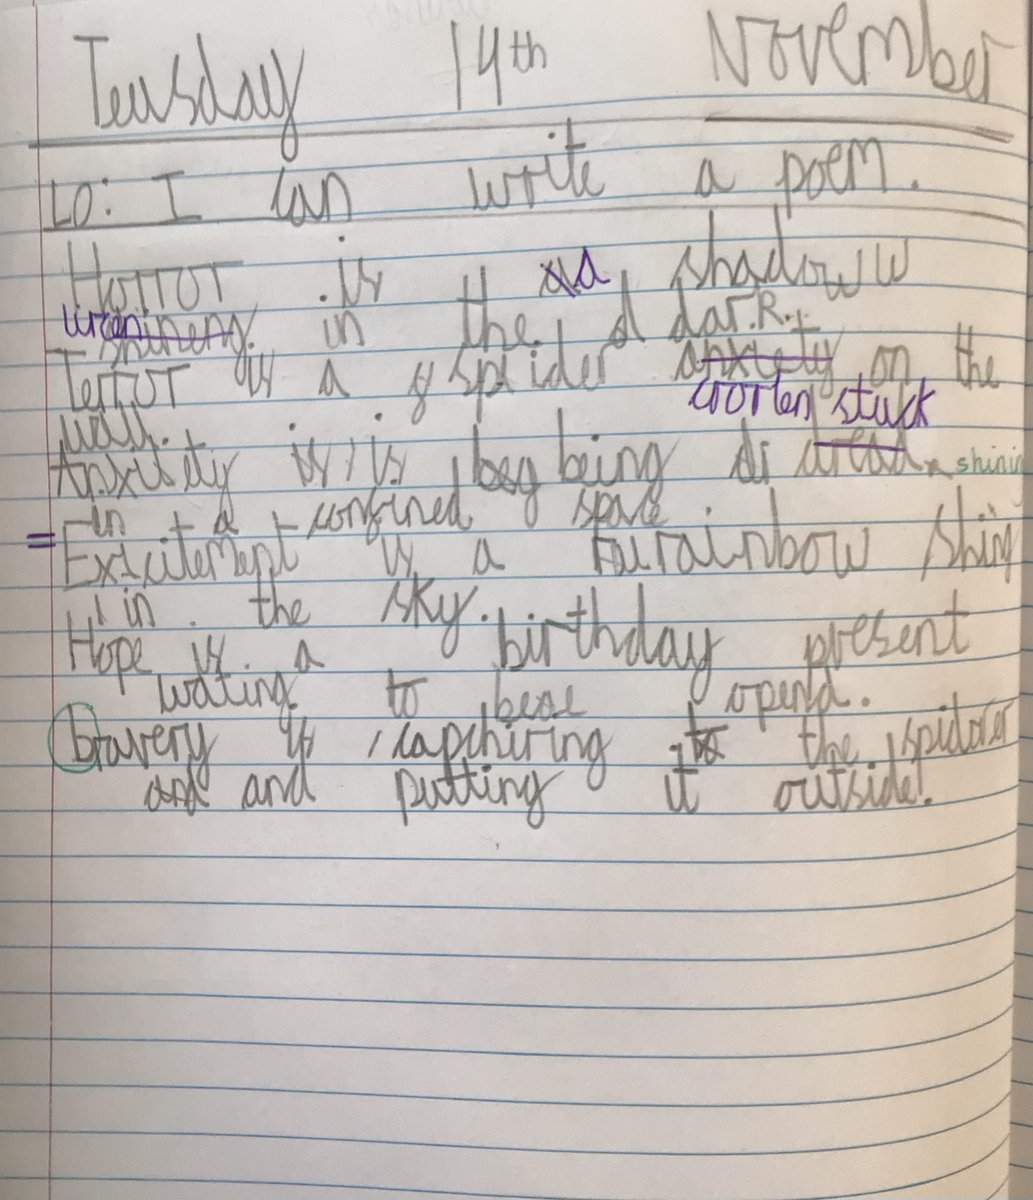 Teusday 14th November
LO: I can write a poem.
Horror is a shadow
in the d dark.
Terror is a spider anxiety on the
wall. crorlen stuck
Anxiety is is being di dread shinin
in a confined space
= Excitement is a rainbow shing
in the sky.
Hope is a birthday present
wating to be opend.
bravery is capchiring to the spider
and and putting it outside!